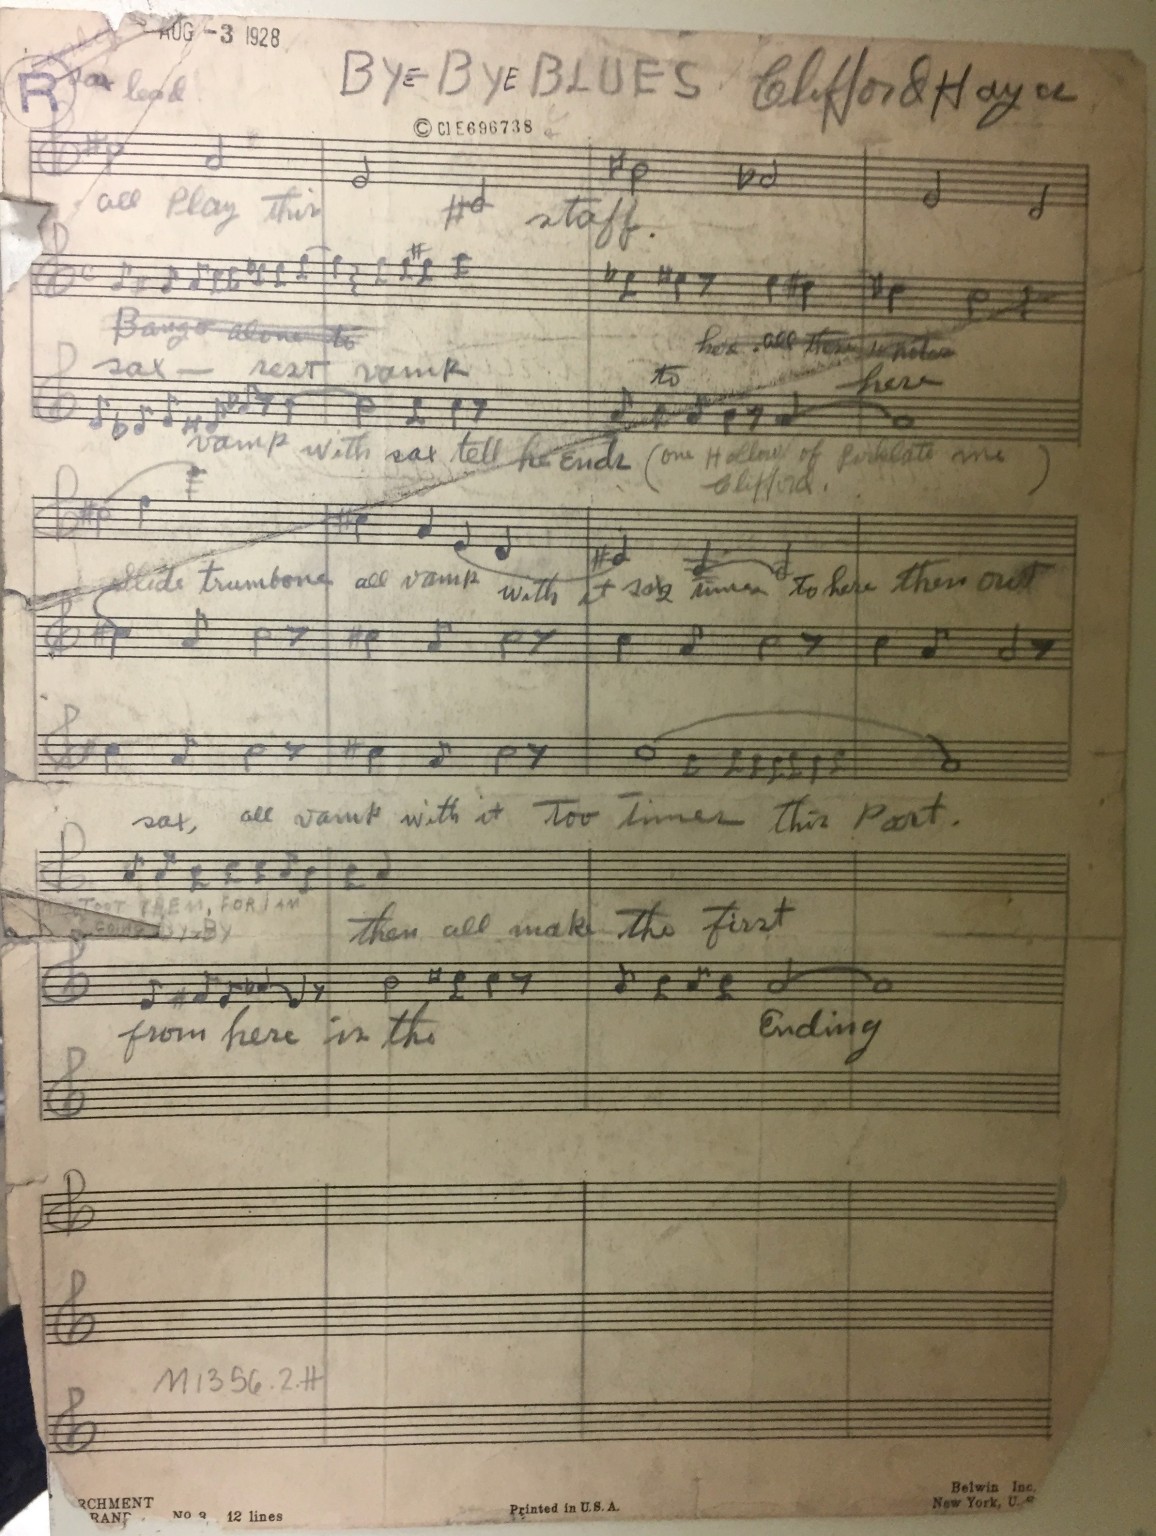 AUG -3 1928
R sax lead BYE BYE BLUES Clifford Hayes
© CI E696738
all Play this staff.
Bango alone to
here all these notes
sax — rest vamp to here
vamp with sax tell he Ends (one Hollow of me
Clifford. )
slide trumbone all vamp with it times to here then out
sax, all vamp with it Too Times this Part.
TOOT THEM, FOR I AM
GOING BY-BY
then all make the first
from here is the Ending
M1356.2.H
RCHMENT
RAND No 12 lines
Printed in U.S.A.
Belwin Inc.
New York, U.S.